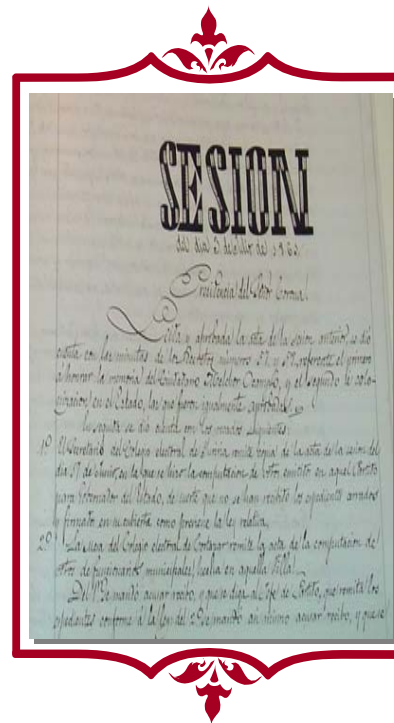 SESION
del dia 3 de Julio de 1861.
Presidencia del Señor Corona.
Leida y aprobada la acta de la sesion anterior, se dió
cuenta con las minutas de los números 57 y referente el primero
á honrar la memoria del Ciudadano Melchor Ocampo, y el segundo á colo-
nizacion en el Estado, las que fueron igualmente aprobadas.
En seguida se dió cuenta con los siguientes:
1º El Secretario del Colegio electoral de remite copia de la acta de la sesion del
dia 17 de Junio, en la que se hizo la computacion de votos emitidos en aquel Partido
para Gobernador del Estado, de suerte que no se han recibido los espedientes cerrados
y firmados en su cubierta como previene la ley relativa.
2º La mesa del Colegio electoral de Cortazar remite la acta de la computacion de
votos de funcionarios municipales, hecha en aquella Villa.
Del 1º Se mandó acusar recibo, y que se diga al Gefe de Partido, que remita los
espedientes conforme á la ley: del 2º Se mandó así mismo acusar recibo, y que se